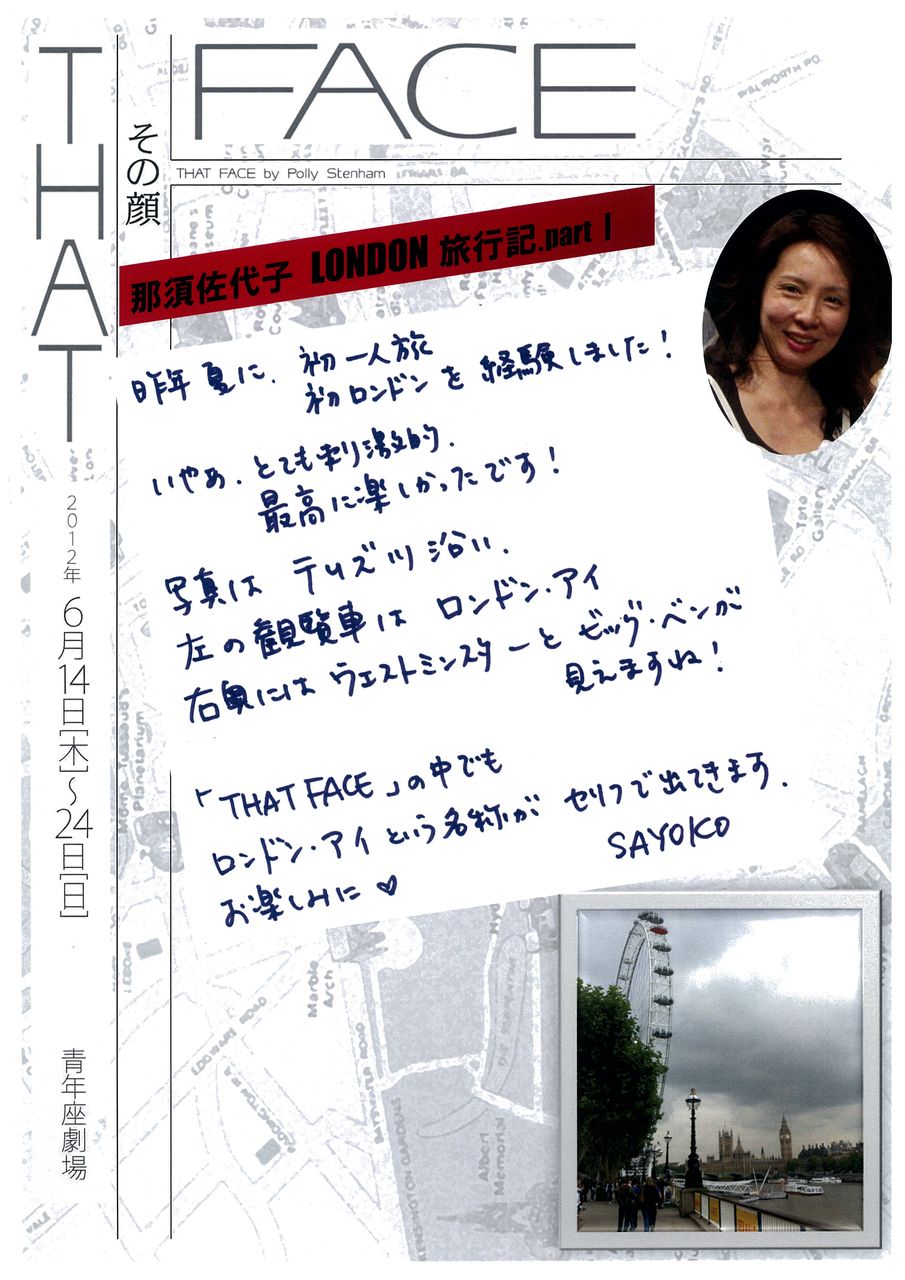 THAT
FACE
その顔
THAT FACE by Polly Stenham
那須佐代子 LONDON 旅行記.part 1
昨年夏に、初一人旅
初ロンドンを経験しました!
いやぁ、とても刺激的、
最高に楽しかったです!
写真は テムズ川沿い、
左の観覧車は ロンドン・アイ
右奥には ウェストミンスターと ビッグ・ベンが
見えますね!
「THAT FACE」の中でも
ロンドン・アイという名称が セリフで出てきます。
お楽しみに♡
SAYOKO
2012年 6月14日[木]~24日[日]
青年座劇場
Marble
Arch
EDGWARE ROAD
KENSINGTON GARDENS
Albert
Memori
Planetarium
Gallery